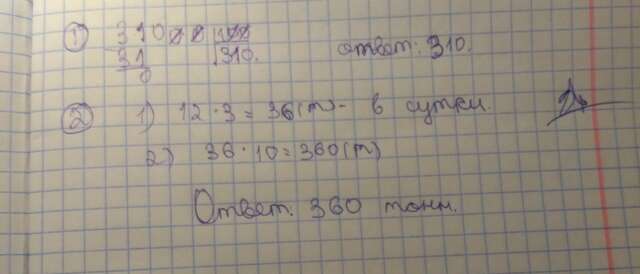 ① 31000 | 100
31 | 310.
0
ответ: 310.
② 1) 12 · 3 = 36 (т) - в сутки.
2) 36 · 10 = 360 (т)
Ответ: 360 тонн.